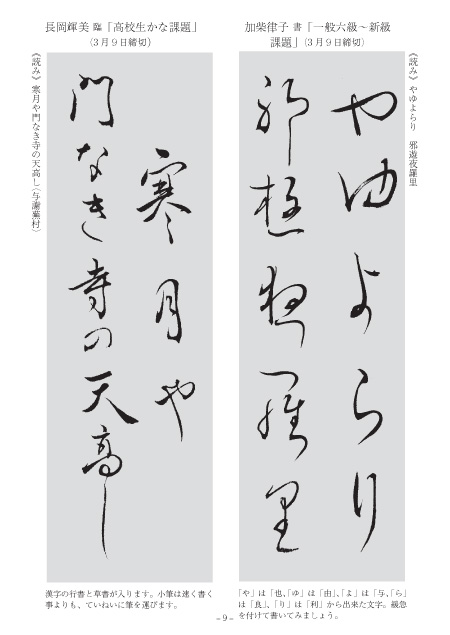 加柴律子 書「一般六級～新級
課題」（3月9日締切）
《読み》やゆよらり　邪遊夜羅里
やゆよらり
邪遊夜羅里
「や」は「也、「ゆ」は「由」、「よ」は「与、「ら」
は「良」、「り」は「利」から出来た文字。緩急
を付けて書いてみましょう。
長岡輝美 臨「高校生かな課題」
（3月9日締切）
寒月や
門なき寺の天高し
《読み》寒月や門なき寺の天高し（与謝蕪村）
漢字の行書と草書が入ります。小筆は速く書く
事よりも、ていねいに筆を運びます。
- 9 -